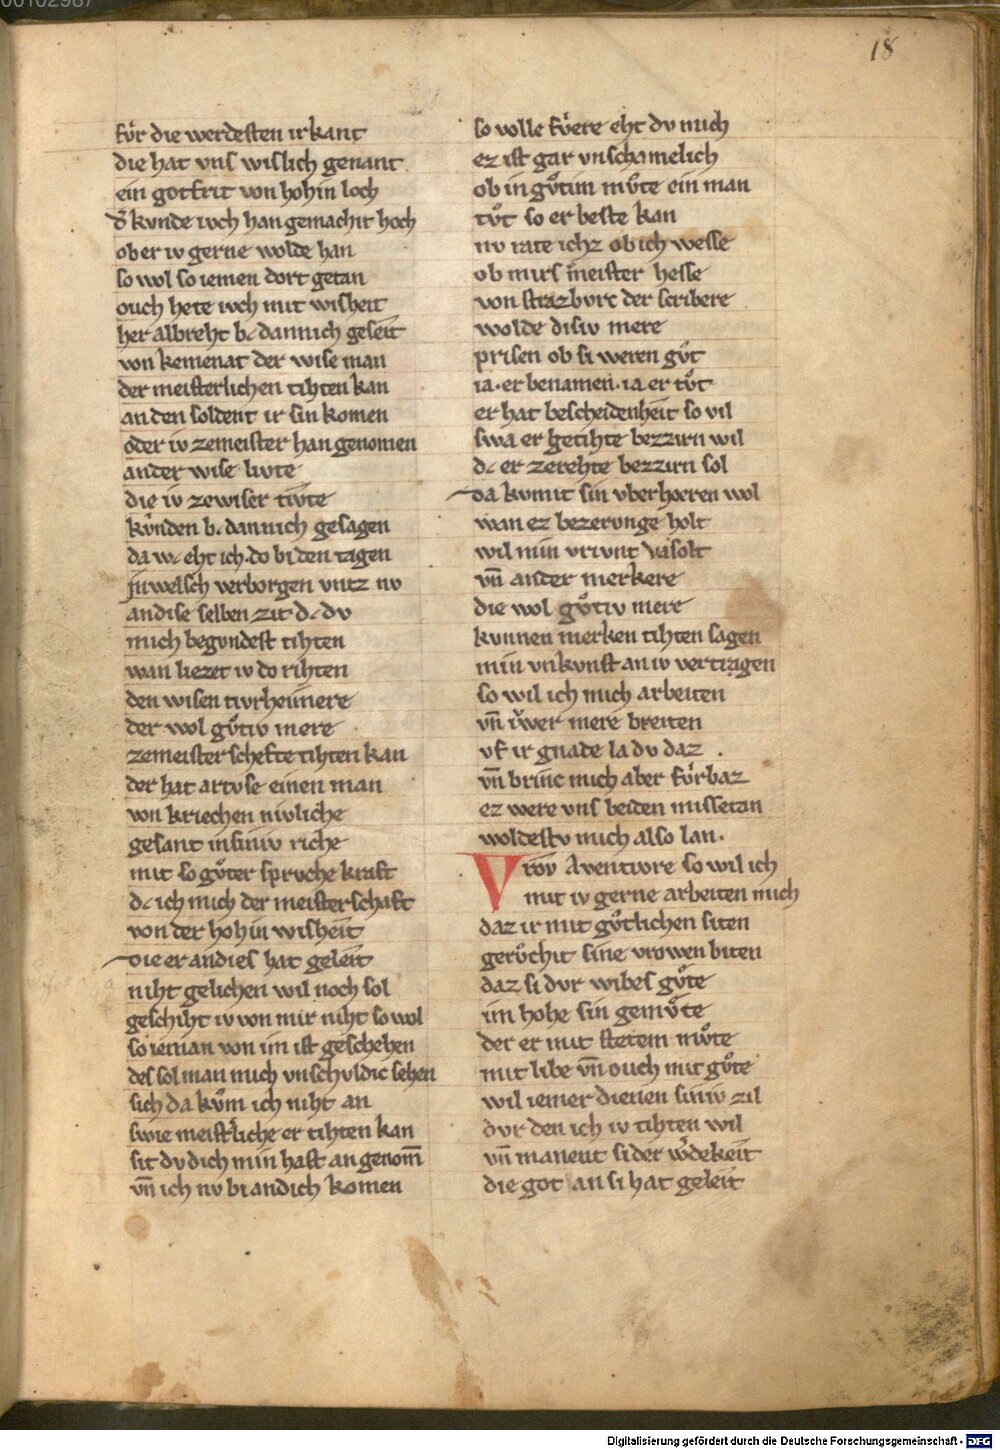 00102987
18
fv̊r die werdesten irkant
die hat vns wislich genant
ein gotfrit von hohin loch
d̾ kvnde ivch han gemachit hoch
ob er iv gerne wolde han
so wol so iemen dort getan
ouch hete ivch mit wisheit
her albreht b dannich geseit
von kemenat der wise man
der meisterlichen tihten kan
an den soldent ir sin komen
oder iv zemeister han genomen
ander wise livte
die iv zewiser tivte
kv̊nden b. dannich gesagen
da w eht ich do bi den tagen
in welsch verborgen vntz nv
an dise selben zit d dv
mich begvndest tihten
wan liezet iv do rihten
den wisen tvrheimere
der wol gv̊tiv mere
zemeisterschefte tihten kan
der hat artvse einen man
von kriechen nivliche
gesant in siniv riche
mit so gv̊ter sprvche kraft
d ich mich der meisterschaft
von der hohin wisheit
die er an dies hat geleit
niht gelichen wil noch sol
geschiht iv von mir niht so wol
so ieman von im ist geschehen
des sol man mich vnschvldic sehen
sich da kv̊m ich niht an
swie meist̾liche er tihten kan
sit dv dich min hast an genom̄
vn̄ ich nv bi an dich komen
so volle fv̊ere eht dv mich
ez ist gar vnschamelich
ob in gv̊tim mv̊te ein man
tv̊t so er beste kan
nv rate ichz ob ich wesse
ob mirs meister hesse
von strazbvrc der scribere
wolde disiv mere
prisen ob si weren gv̊t
ia er benamen ia er tv̊t
er hat bescheidenheit so vil
swa er getihte bezzirn wil
d er zerehte bezzirn sol
da kvmit sin vberhoeren wol
wan ez bezervnge holt
wil min vrivnt vasolt
vn̄ ander merkere
die wol gv̊tiv mere
kvnnen merken tihten sagen
min vnkvnst an iv vertragen
so wil ich mich arbeiten
vn̄ iv̊wer mere breiten
vf ir gnade la dv daz
vn̄ brinc mich aber fv̊rbaz
ez were vns beiden missetan
woldestv mich also lan.
Vrov Aventivre so wil ich
mit iv gerne arbeiten mich
daz ir mit gv̊tlichen siten
gerv̊chit sine vrowen biten
daz si dvr wibes gv̊te
im hohe sin gemv̊te
der er mit stetem mv̊te
mit libe vn̄ ouch mit gv̊te
wil iemer dienen siniv zil
dvr den ich iv tihten wil
vn̄ manent si der w̾dekeit
die got an si hat geleit
Digitalisierung gefördert durch die Deutsche Forschungsgemeinschaft - DFG